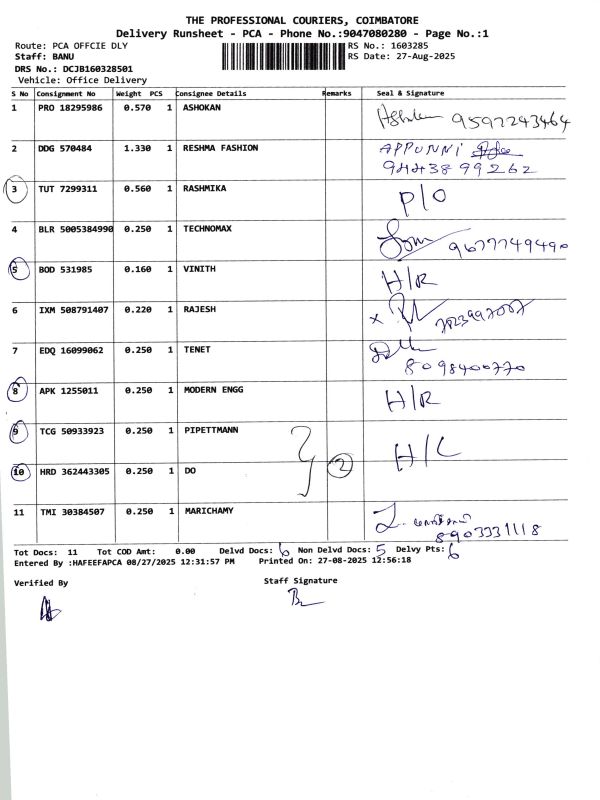 THE PROFESSIONAL COURIERS, COIMBATORE
Delivery Runsheet - PCA - Phone No.:9047080280 - Page No.:1
Route: PCA OFFCIE DLY RS No.: 1603285
Staff: BANU RS Date: 27-Aug-2025
DRS No.: DCJB160328501
Vehicle: Office Delivery
S No Consignment No Weight PCS Consignee Details Remarks Seal & Signature
1 PRO 18295986 0.570 1 ASHOKAN 9597243464
2 DDG 570484 1.330 1 RESHMA FASHION APPUNNI
9443899262
3 TUT 7299311 0.560 1 RASHMIKA P/O
4 BLR 5005384990 0.250 1 TECHNOMAX 9677749490
5 BOD 531985 0.160 1 VINITH H/R
6 IXM 508791407 0.220 1 RAJESH x
7 EDQ 16099062 0.250 1 TENET
8098400770
8 APK 1255011 0.250 1 MODERN ENGG H/R
9 TCG 50933923 0.250 1 PIPETTMANN H/C
10 HRD 362443305 0.250 1 DO 2
11 TMI 30384507 0.250 1 MARICHAMY
8903331118
Tot Docs: 11 Tot COD Amt: 0.00 Delvd Docs: 6 Non Delvd Docs: 5 Delvy Pts: 6
Entered By :HAFEEFAPCA 08/27/2025 12:31:57 PM Printed On: 27-08-2025 12:56:18
Verified By Staff Signature